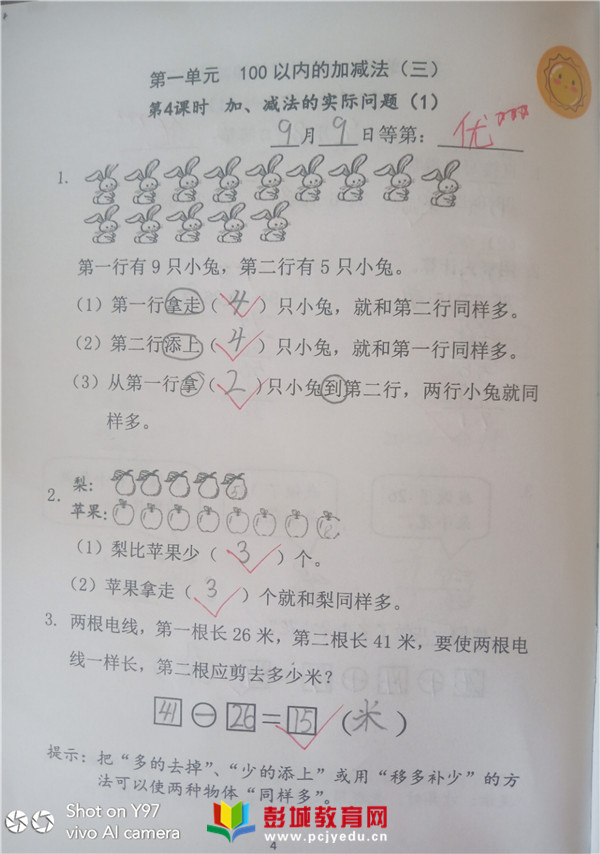 第一单元 100以内的加减法（三）
第4课时 加、减法的实际问题（1）
9月9日等第：优
1.
第一行有9只小兔，第二行有5只小兔。
（1）第一行拿走（4）只小兔，就和第二行同样多。
（2）第二行添上（4）只小兔，就和第一行同样多。
（3）从第一行拿（2）只小兔到第二行，两行小兔就同
样多。
2. 梨：
苹果：
（1）梨比苹果少（3）个。
（2）苹果拿走（3）个就和梨同样多。
3. 两根电线，第一根长26米，第二根长41米，要使两根电
线一样长，第二根应剪去多少米？
41－26＝15（米）
提示：把“多的去掉”、“少的添上”或用“移多补少”的方
法可以使两种物体“同样多”。
Shot on Y97
vivo AI camera
彭城教育网
www.pcjyedu.cn
4